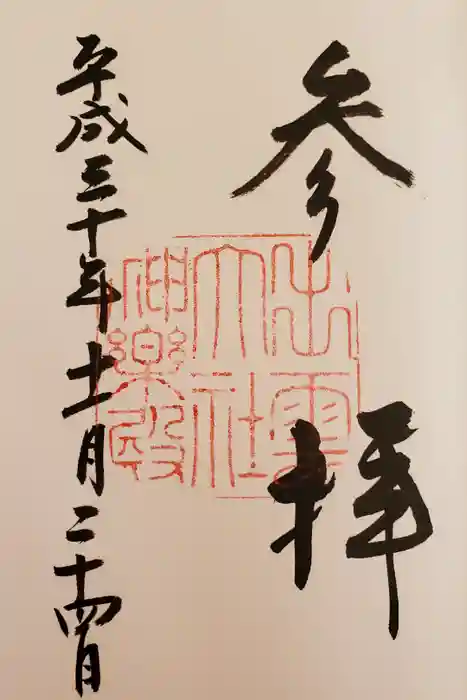 参拝
出雲
大社
神楽殿
平成三十年十一月二十四日